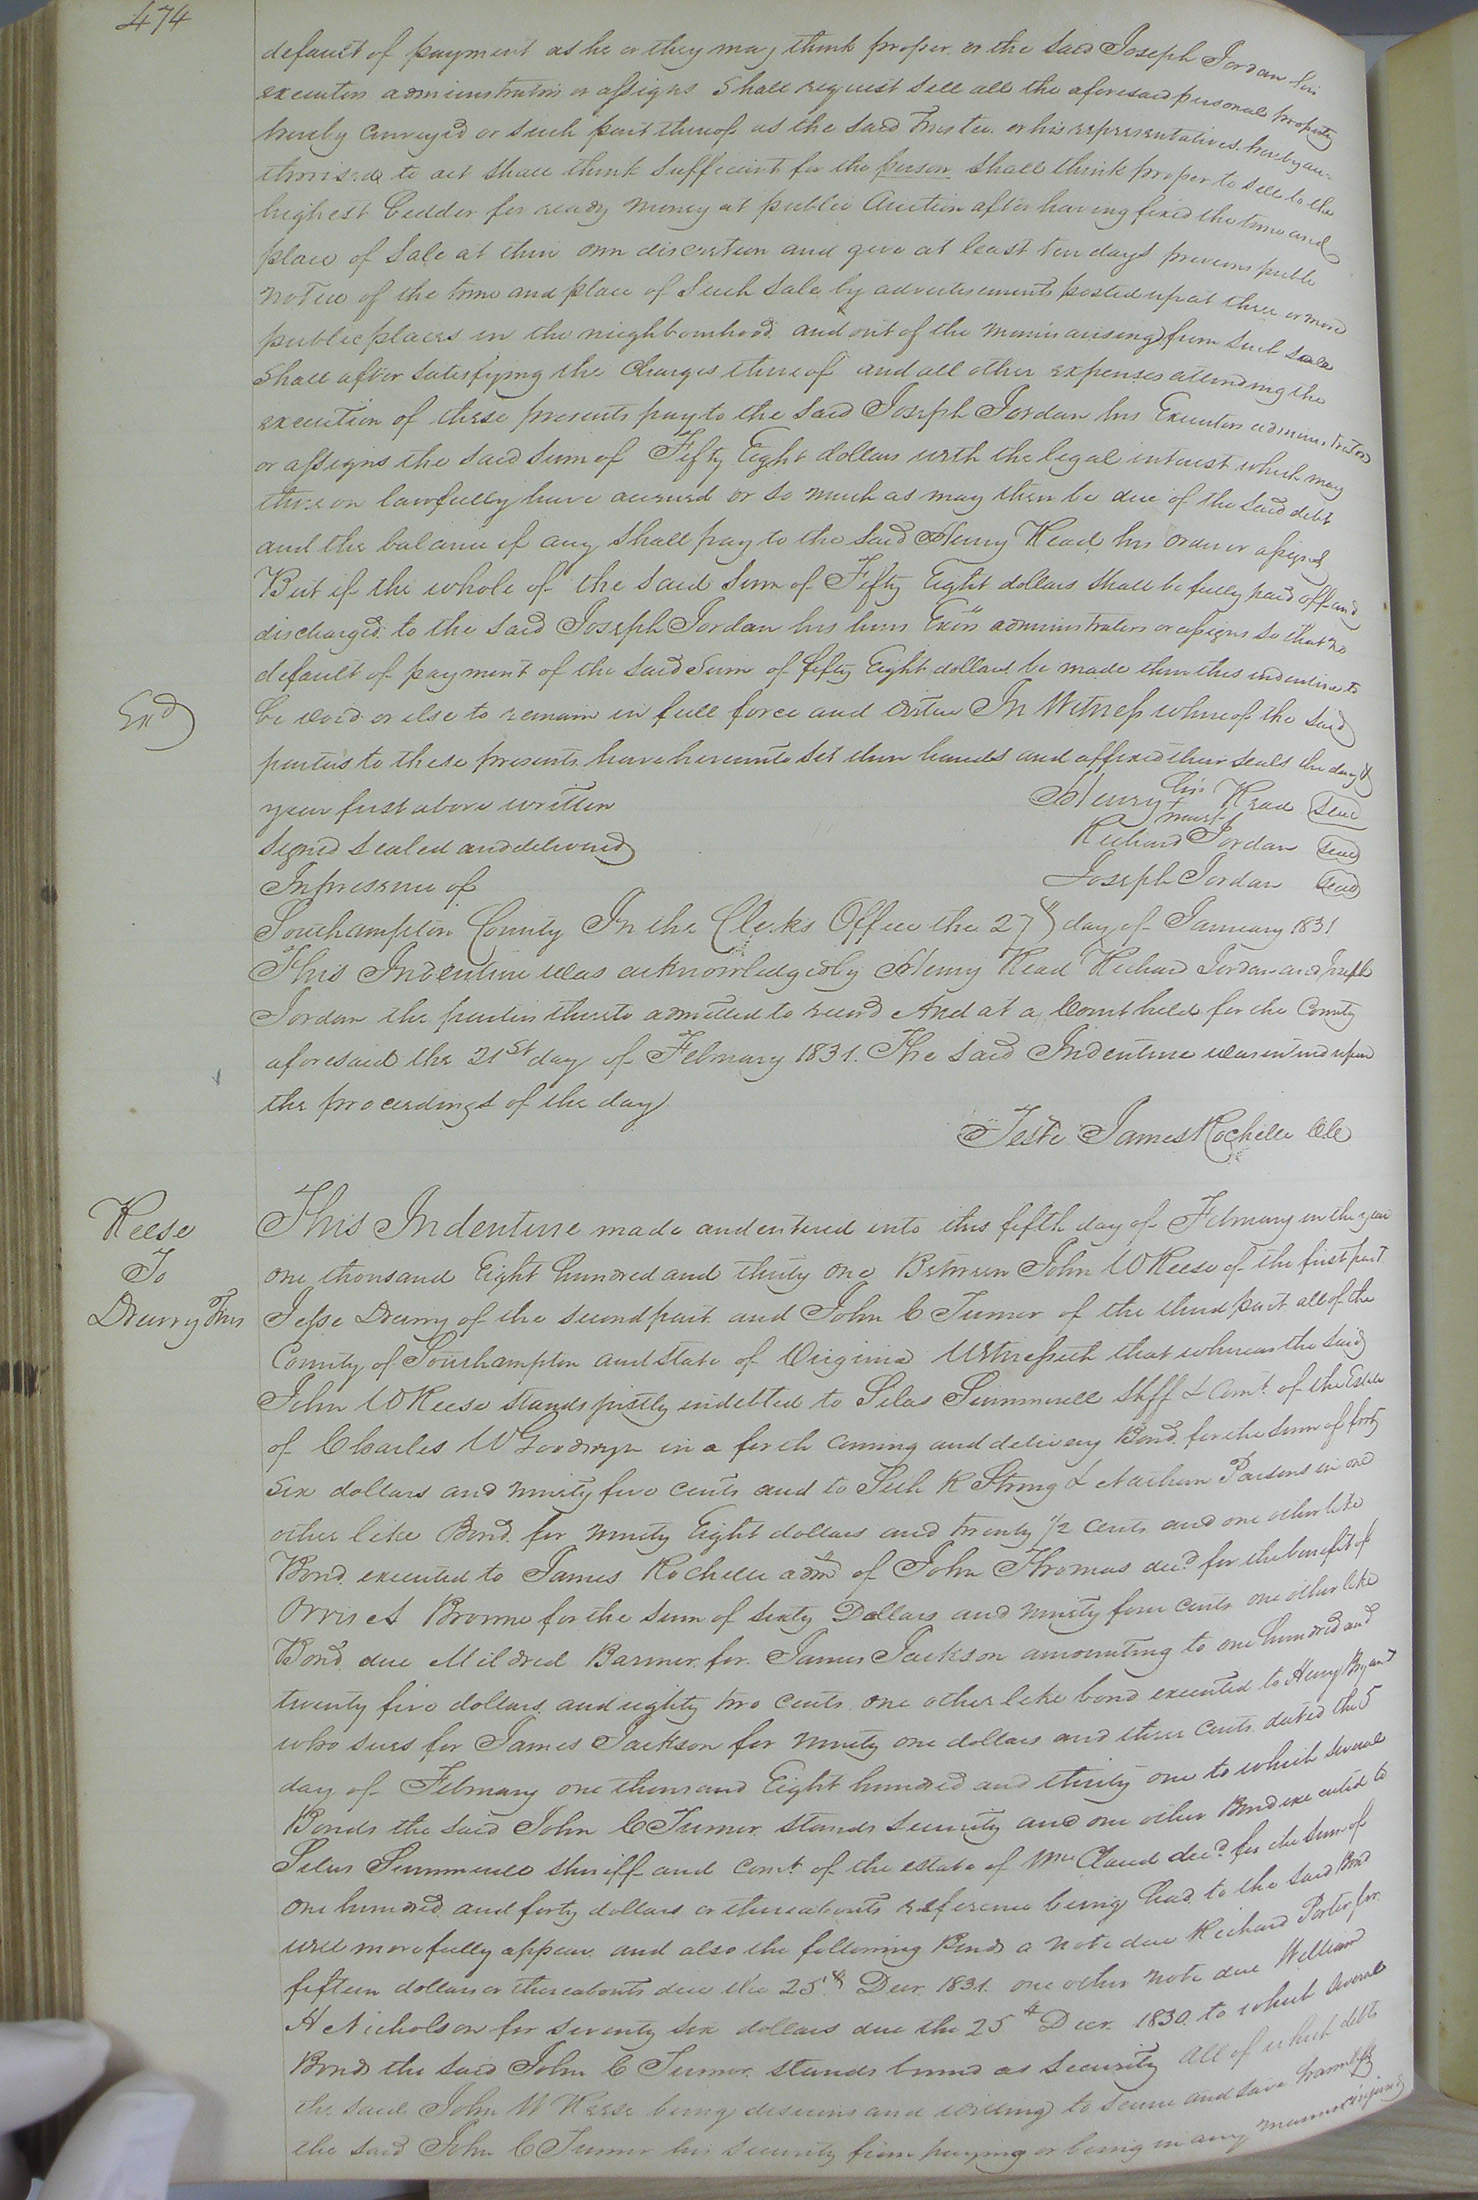 474
default of payment as he or they may think proper or the said Joseph Jordan his
executors administrators or assigns Shall request sell all the aforesaid personal property
hereby conveyed or such part thereof as the said Trustee or his representatives hereby au-
thorised to act shall think sufficient for the person shall think proper to sell to the
highest bedder for ready money at public Auction after having fixed the time and
place of sale at their own discretion and give at least ten days previous public
notice of the time and place of such sale by advertisements posted up at three or more
public places in the neighbourhood and out of the monies arising from such sale
Shall after satisfying the charges thereof and all other expenses attending the
execution of these presents pay to the said Joseph Jordan his Executors administrators
or assigns the said sum of Fifty Eight dollars with the legal interest which may
thereon lawfully have accrued or so much as may then be due of the said debt
and the balance if any shall pay to the said Henry Head his order or assigns
But if the whole of the said sum of Fifty Eight dollars shall be fully paid off and
discharged to the said Joseph Jordan his heirs Exõrs administrators or assigns so that no
default of payment of the said sum of fifty Eight dollars be made then this indenture to
Exd
be void or else to remain in full force and virtue In Witness whereof the said
parties to these presents have hereunto set their hands and affixed their seals the day &
year first above written Henry his + mark Head Seal
Signed sealed and delivered Richard Jordan Seal
In presence of Joseph Jordan Seal
Southampton County In the Clerks Office the 27th day of January 1831
This Indenture was acknowledged by Henry Head Richard Jordan and Joseph
Jordan the parties thereto admitted to record And at a Court held for the County
aforesaid the 21st day of February 1831. The said Indenture was entered upon
the proceedings of the day
Teste James Rochelle Clk
Reese
To
Drewry Trus
This Indenture made and entered into this fifth day of February in the year
one thousand Eight hundred and thirty one Between John W Reese of the first part
Jesse Drewry of the second part and John C Turner of the third part all of the
County of Southampton and state of Virginia Witnesseth that whereas the said
John W Reese stands justly indebted to Silas Summerell Shff & Comt. of the Estate
of Charles W Goodwyn in a forth coming and delivery Bond for the sum of forty
six dollars and ninety five cents and to Seth K Strong & Nathan Parsons in one
other like Bond for ninety Eight dollars and twenty 1/2 cents and one other like
Bond executed to James Rochelle adm of John Thomas decd for the benefit of
Orris A Browne for the sum of sixty Dollars and ninety four cents one other like
Bond due Mildred Barmer for James Jackson amounting to one hundred and
twenty five dollars and eighty two cents one other like bond executed to Henry Bryant
who sues for James Jackson for ninety one dollars and three cents dated the 5
day of February one thousand Eight hundred and thirty one to which several
Bonds the said John C Turner stands security and one other Bond executed to
Silas Summerell Sheriff and comt. of the estate of Wm Claud decd for the sum of
one hundred and forty dollars or thereabouts reference being had to the said Bond
will more fully appear and also the following Bonds a note due Richard Porter for
fifteen dollars or thereabouts due the 25th Decr. 1831. one other note due William
H Nicholson for seventy six dollars due the 25th Decr. 1830. to which several
Bonds the said John C Turner stands bound as security all of which debts
the said John W Reese being desirous and willing to secure and save harmless
the said John C Turner his security from paying or being in any manner injured